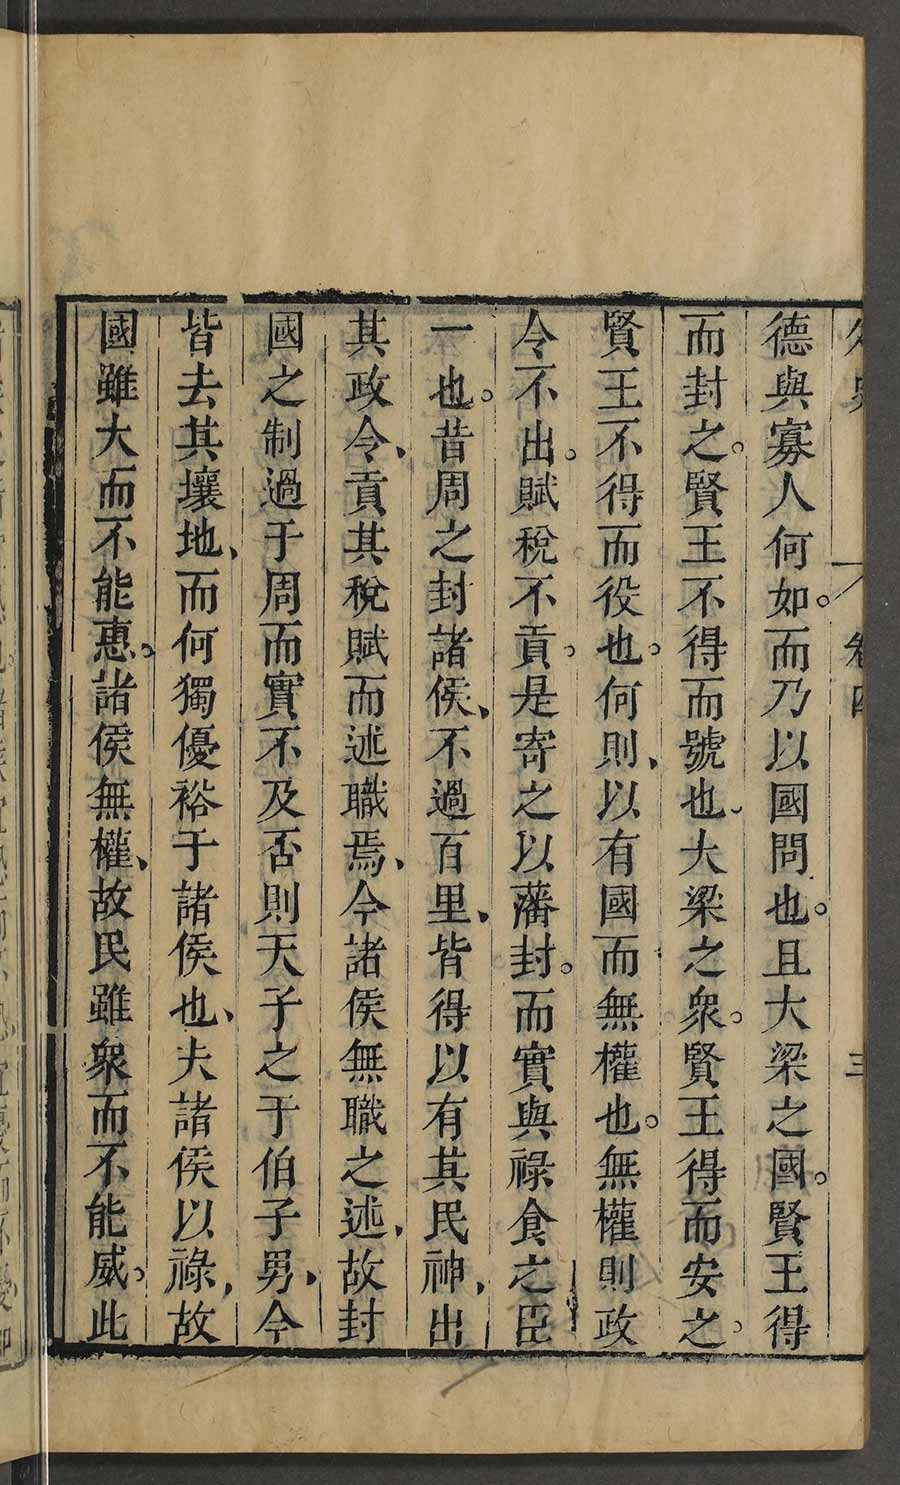 德與寡人何如。而乃以國問也。且大梁之國。賢王得
而封之。賢王不得而號也、大梁之衆。賢王得而安之。
賢王不得而役也。何則、以有國而無權也。無權則政
令不出。賦稅不貢。是寄之以藩封。而實與祿食之臣
一也。昔周之封諸侯、不過百里、皆得以有其民神、出
其政令、貢其稅賦而述職焉、今諸侯無職之述、故封
國之制過于周而實不及否則天子之于伯子男、今
皆去其壤地、而何獨優裕于諸侯也、夫諸侯以祿、故
國雖大而不能惠。諸侯無權、故民雖衆而不能威。此